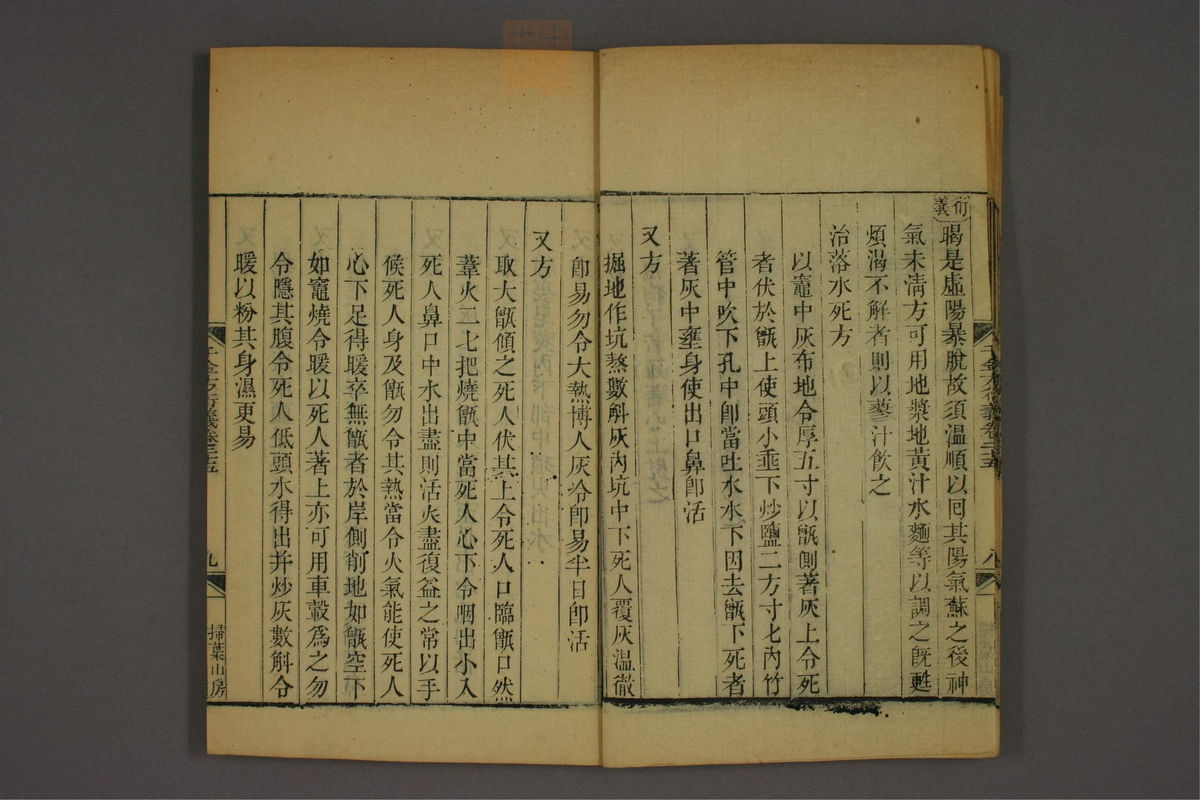 衍義
暍是虛陽暴脫故須溫順以囘其陽氣蘇之後神
氣未淸方可用地漿地黃汁水麵等以調之旣甦
煩渴不解者則以蓼汁飮之
治落水死方
以竈中灰布地令厚五寸以甑側著灰上令死
者伏於甑上使頭小垂下炒鹽二方寸匕內竹
管中吹下孔中卽當吐水水下因去甑下死者
著灰中壅身使出口鼻卽活
又方
掘地作坑熬數斛灰內坑中下死人覆灰溫徹
卽易勿令大熱博人灰令卽易半日卽活
又方
取大甑傾之死人伏其上令死人口臨甑口然
葦火二七把燒甑中當死人心下令咽出小入
死人鼻口中水出盡則活火盡復益之常以手
候死人身及甑勿令其熱當令火氣能使死人
心下足得暖卒無甑者於岸側削地如甑空下
如竈燒令暖以死人著上亦可用車轂爲之勿
令隱其腹令死人低頭水得出幷炒灰數斛令
暖以粉其身濕更易
千金方衍義卷二十五
八
千金方衍義卷二十五
九
掃葉山房